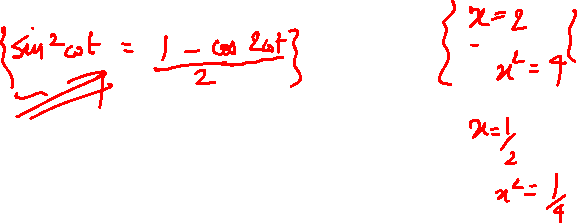 {sin²ωt = (1 - cos 2ωt)/2}
{x=2
x²=4}
x=1/2
x²=1/4